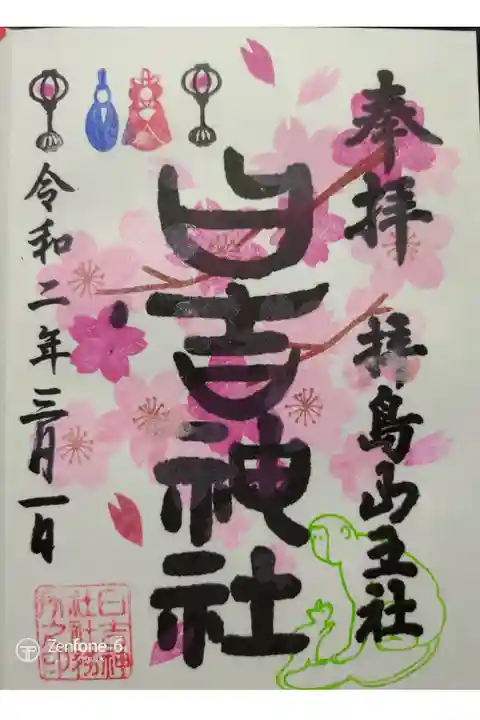 奉拝 拝島山王社
日吉神社
令和二年三月一日
日吉神
社社務
所之印
Zenfone 6